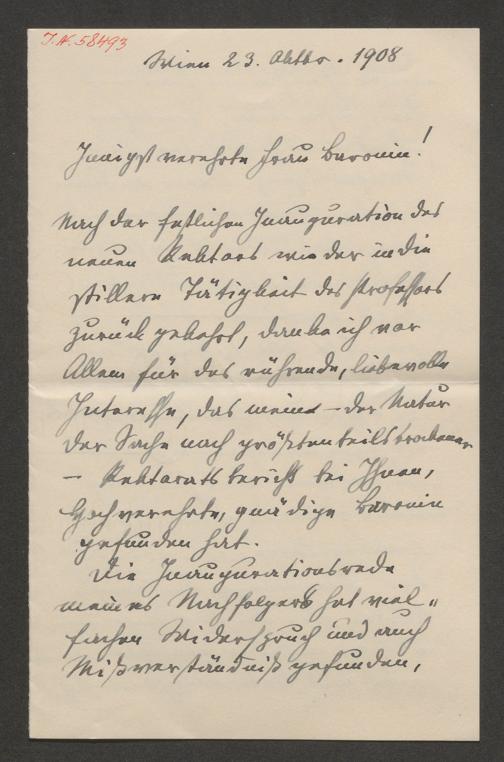 J.N. 58493
Wien 23. Oktbr. 1908
Innigst verehrte Frau Baronin!
Nach der festlichen Inauguration des
neuen Rektors wieder in die
stillere Tätigkeit des Professors
zurück gekehrt, danke ich vor
Allem für das rührende, liebevolle
Interesse, das meine – der Natur
der Sache nach größtenteils trockener
– Rektoratsbericht bei Ihnen,
Hochverehrte, gnädige Baronin
gefunden hat.
Die Inaugurationsrede
meines Nachfolgers hat viel„
fachen Widerspruch und auch
Mißverständniß gefunden,